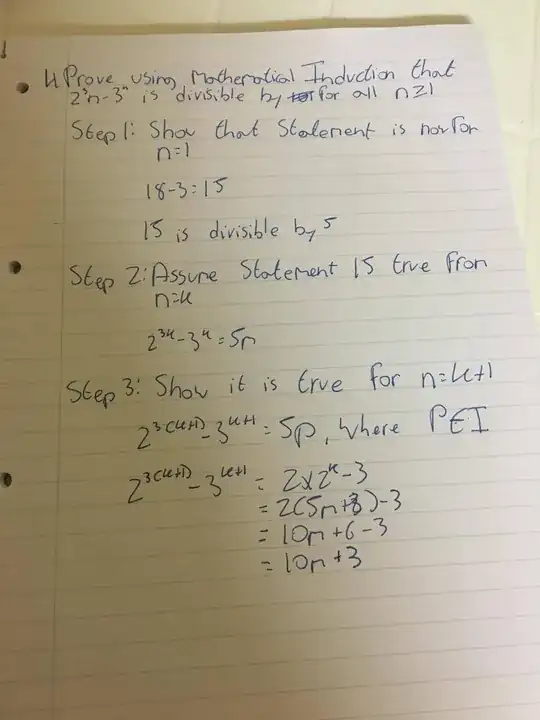 4 Prove using Mathematical Induction that
2³n-3ⁿ is divisible by for all n≥1
Step 1: Show that Statement is for
n=1
18-3=15
15 is divisible by 5
Step 2: Assure Statement is true from
n=k
2³ᵏ-3ᵏ=5m
Step 3: Show it is true for n=k+1
2³⁽ᵏ⁺¹⁾-3ᵏ⁺¹=5p, where P∈I
2³⁽ᵏ⁺¹⁾-3ᵏ⁺¹ = 2x2ᵏ-3
= 2(5m+3)-3
= 10m+6-3
= 10m+3